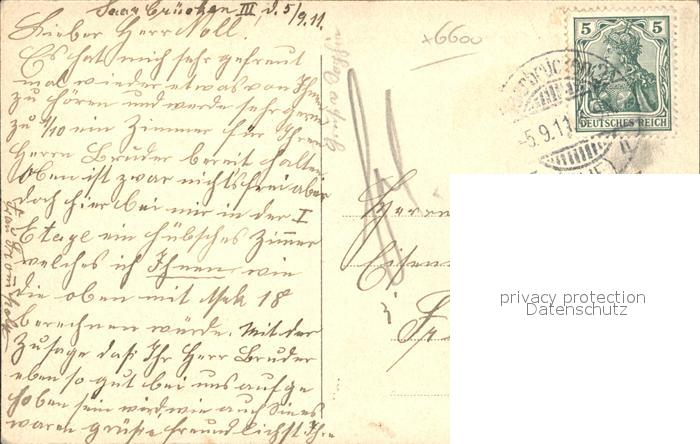 Saarbrücken III, d. 5/9.11.
Lieber Herr Noll!
Es hat mich sehr gefreut
mal wieder etwas von Ihnen
zu hören und werde sehr gerne
zu 1/10 ein Zimmer für Ihren
Herrn Bruder bereit halten
Oben ist zwar nichts frei aber
doch hier bei mir in der I
Etage ein hübsches Zimmer
welches ich Ihnen wie
die oben mit Mk 18
berechnen würde. Mit der
Zusage daß Ihr Herr Bruder
eben so gut bei uns aufge
hoben sein wird wie auch Sie es
waren grüße freundlichst Ihre
Frau
x6600
5 5
DEUTSCHES REICH
-5.9.11
Herrn
Eisen
i
Fr
privacy protection
Datenschutz